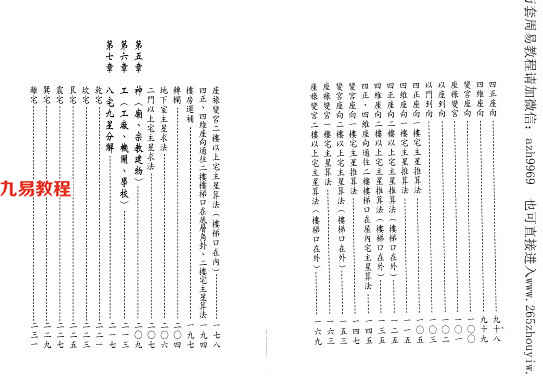 四正座向 九十八
四維座向 九十九
變宮座向 一〇〇
座線變宮 一〇一
以座到向 一〇二
以門到向 一〇三
四正座向一樓宅主星推算法 一〇五
四維座向一樓宅主星推算法 一一五
四正座向二樓以上宅主星推算法（樓梯口在外） 一二五
四維座向二樓以上宅主星推算法（樓梯口在外） 一三五
四正、四維座向通往二樓樓梯口在屋內宅主星算法 一四五
變宮座向一樓宅主星推算法 一四七
變宮座向二樓以上宅主星算法（樓梯口在外） 一五三
座線變宮一樓宅主星推算法 一六三
座線變宮二樓以上宅主星算法（樓梯口在外） 一六九
座線變宮二樓以上宅主星算法（樓梯口在內） 一七八
四正、四維座向通往二樓樓梯口在底層角卦、二樓宅主星算法 一九四
樓房運補 一九七
轉櫃 二〇四
地下室主星求法 二〇六
二門以上宅主星求法 二〇七
第五章 神（廟、宗教建物） 二〇九
第六章 工（工廠、機關、學校） 二一三
第七章 八宅九星分解 二一七
乾宅 二二一
坎宅 二二三
艮宅 二二五
震宅 二二七
巽宅 二二九
離宅 二三一
九易教程
套周易教程请加微信：azh9969 也可直接进入www.265zhouyiw.